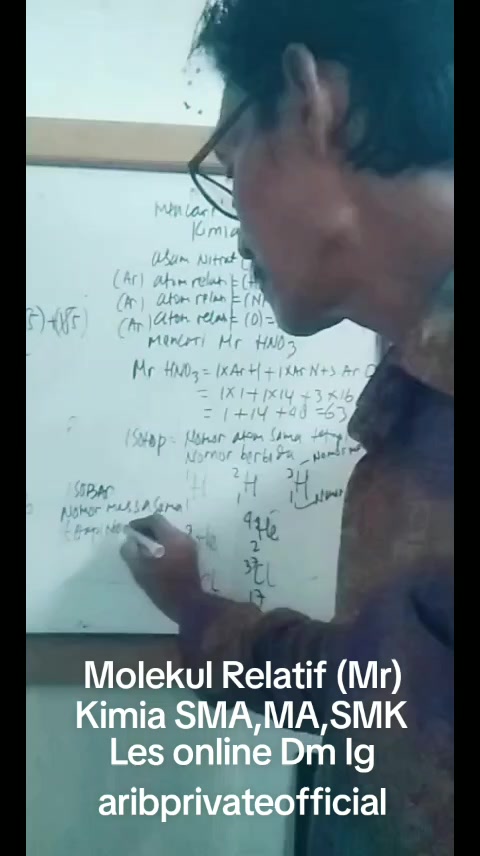 Mencari
Kimia
asam Nitrat
(Ar) atom relatif = (H
(Ar) atom relatif = (N)
(Ar) atom relatif = (O) =
5) + (185)
Mencari Mr HNO3
Mr HNO3 = 1xAr H + 1xAr N + 3 Ar O
= 1x1 + 1x14 + 3x16
= 1 + 14 + 48 = 63
Isotop = Nomor atom sama tetapi
Nomor berbeda
2 1 H 3 1 H Nomor
ISOBAR
Nomor massa sama
tetapi No
4 2 He
37 17 Cl
Molekul Relatif (Mr)
Kimia SMA,MA,SMK
Les online Dm Ig
aribprivateofficial